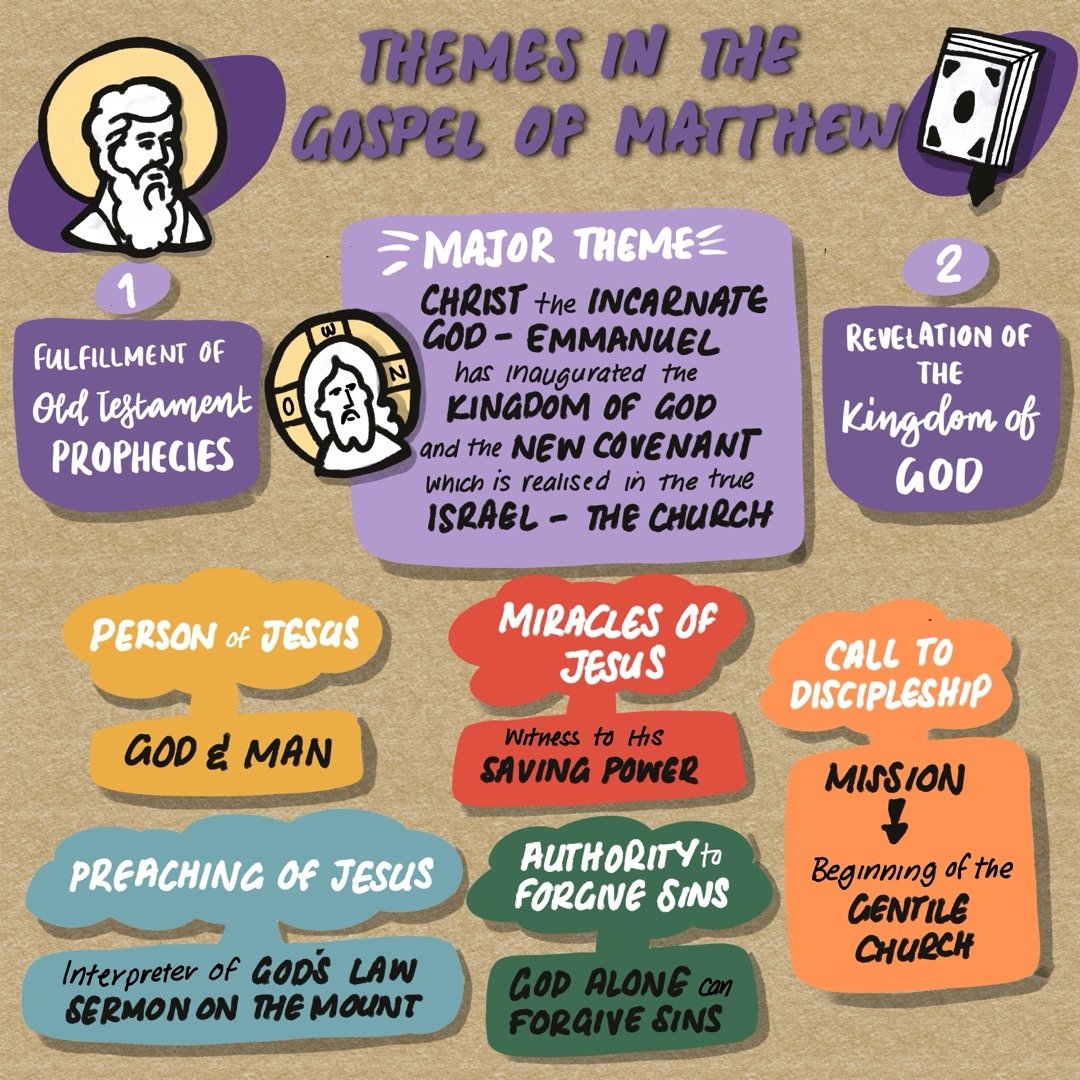 THEMES IN THE
GOSPEL OF MATTHEW
1
FULFILLMENT OF
Old Testament
PROPHECIES
MAJOR THEME
CHRIST the INCARNATE
GOD - EMMANUEL
has inaugurated the
KINGDOM OF GOD
and the NEW COVENANT
which is realised in the true
ISRAEL - THE CHURCH
O W N
2
REVELATION OF
THE
Kingdom of
GOD
PERSON of JESUS
GOD & MAN
MIRACLES OF
JESUS
Witness to His
SAVING POWER
CALL TO
DISCIPLESHIP
MISSION
Beginning of the
GENTILE
CHURCH
PREACHING OF JESUS
Interpreter of GOD'S LAW
SERMON ON THE MOUNT
AUTHORITY to
FORGIVE SINS
GOD ALONE can
FORGIVE SINS